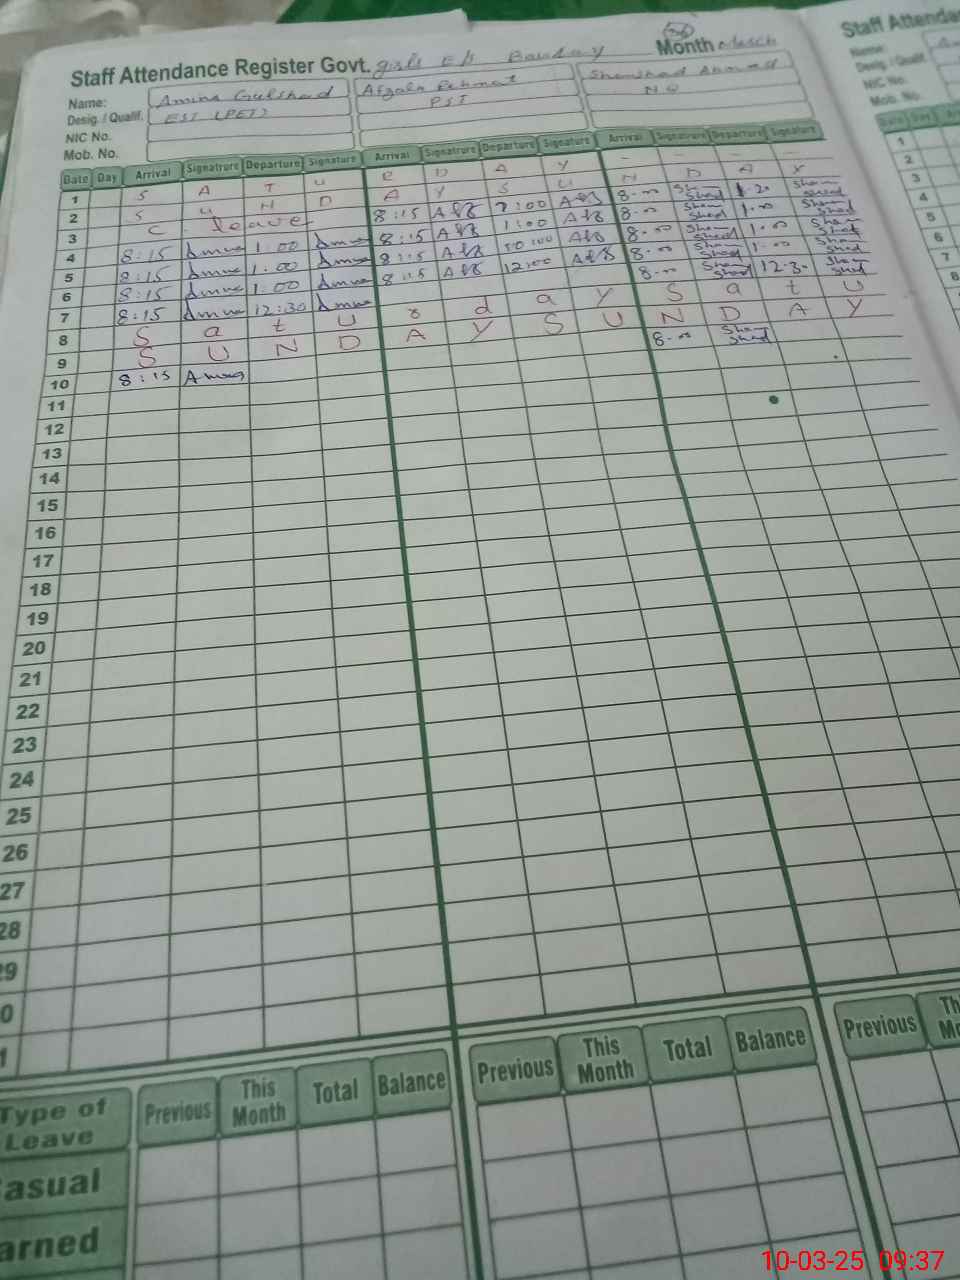 Staff Attendance Register Govt. girls E/s Month March
Staff Attenda
Name: Amina Gulshad Afzala Rehmat Shamshad Ahmad
Desig. / Qualif. EST (PET) PST NQ
NIC No.
Mob. No.
Date Day Arrival Signatrure Departure Signature Arrival Signatrure Departure Signature Arrival Signatrure Departure Signature
1 S A T U R D A Y - - - -
2 S U N D A Y S U N D A Y
3 C. leave 8:15 Afz 1:00 Afz 8.00 Shamshad 1.20 Shamshad
4 8:15 Amna 1:00 Amna 8:15 Afz 1:00 Afz 8.00 Shamshad 1.00 Shamshad
5 8:15 Amna 1.00 Amna 8:15 Afz 10:00 Afz 8.00 Shamshad 1.00 Shamshad
6 8:15 Amna 1:00 Amna 8:15 Afz 12:00 Afz 8.00 Shamshad 1.00 Shamshad
7 8:15 Amna 12:30 Amna 8.00 Shamshad 12.30 Shamshad
8 S a t u r d a y S a t u
9 S U N D A Y S U N D A Y
10 8:15 Amna 8.00 Shamshad
11
12
13
14
15
16
17
18
19
20
21
22
23
24
25
26
27
28
29
0
1
Type of Leave Previous This Month Total Balance Previous This Month Total Balance Previous
asual
arned
10-03-25 09:37